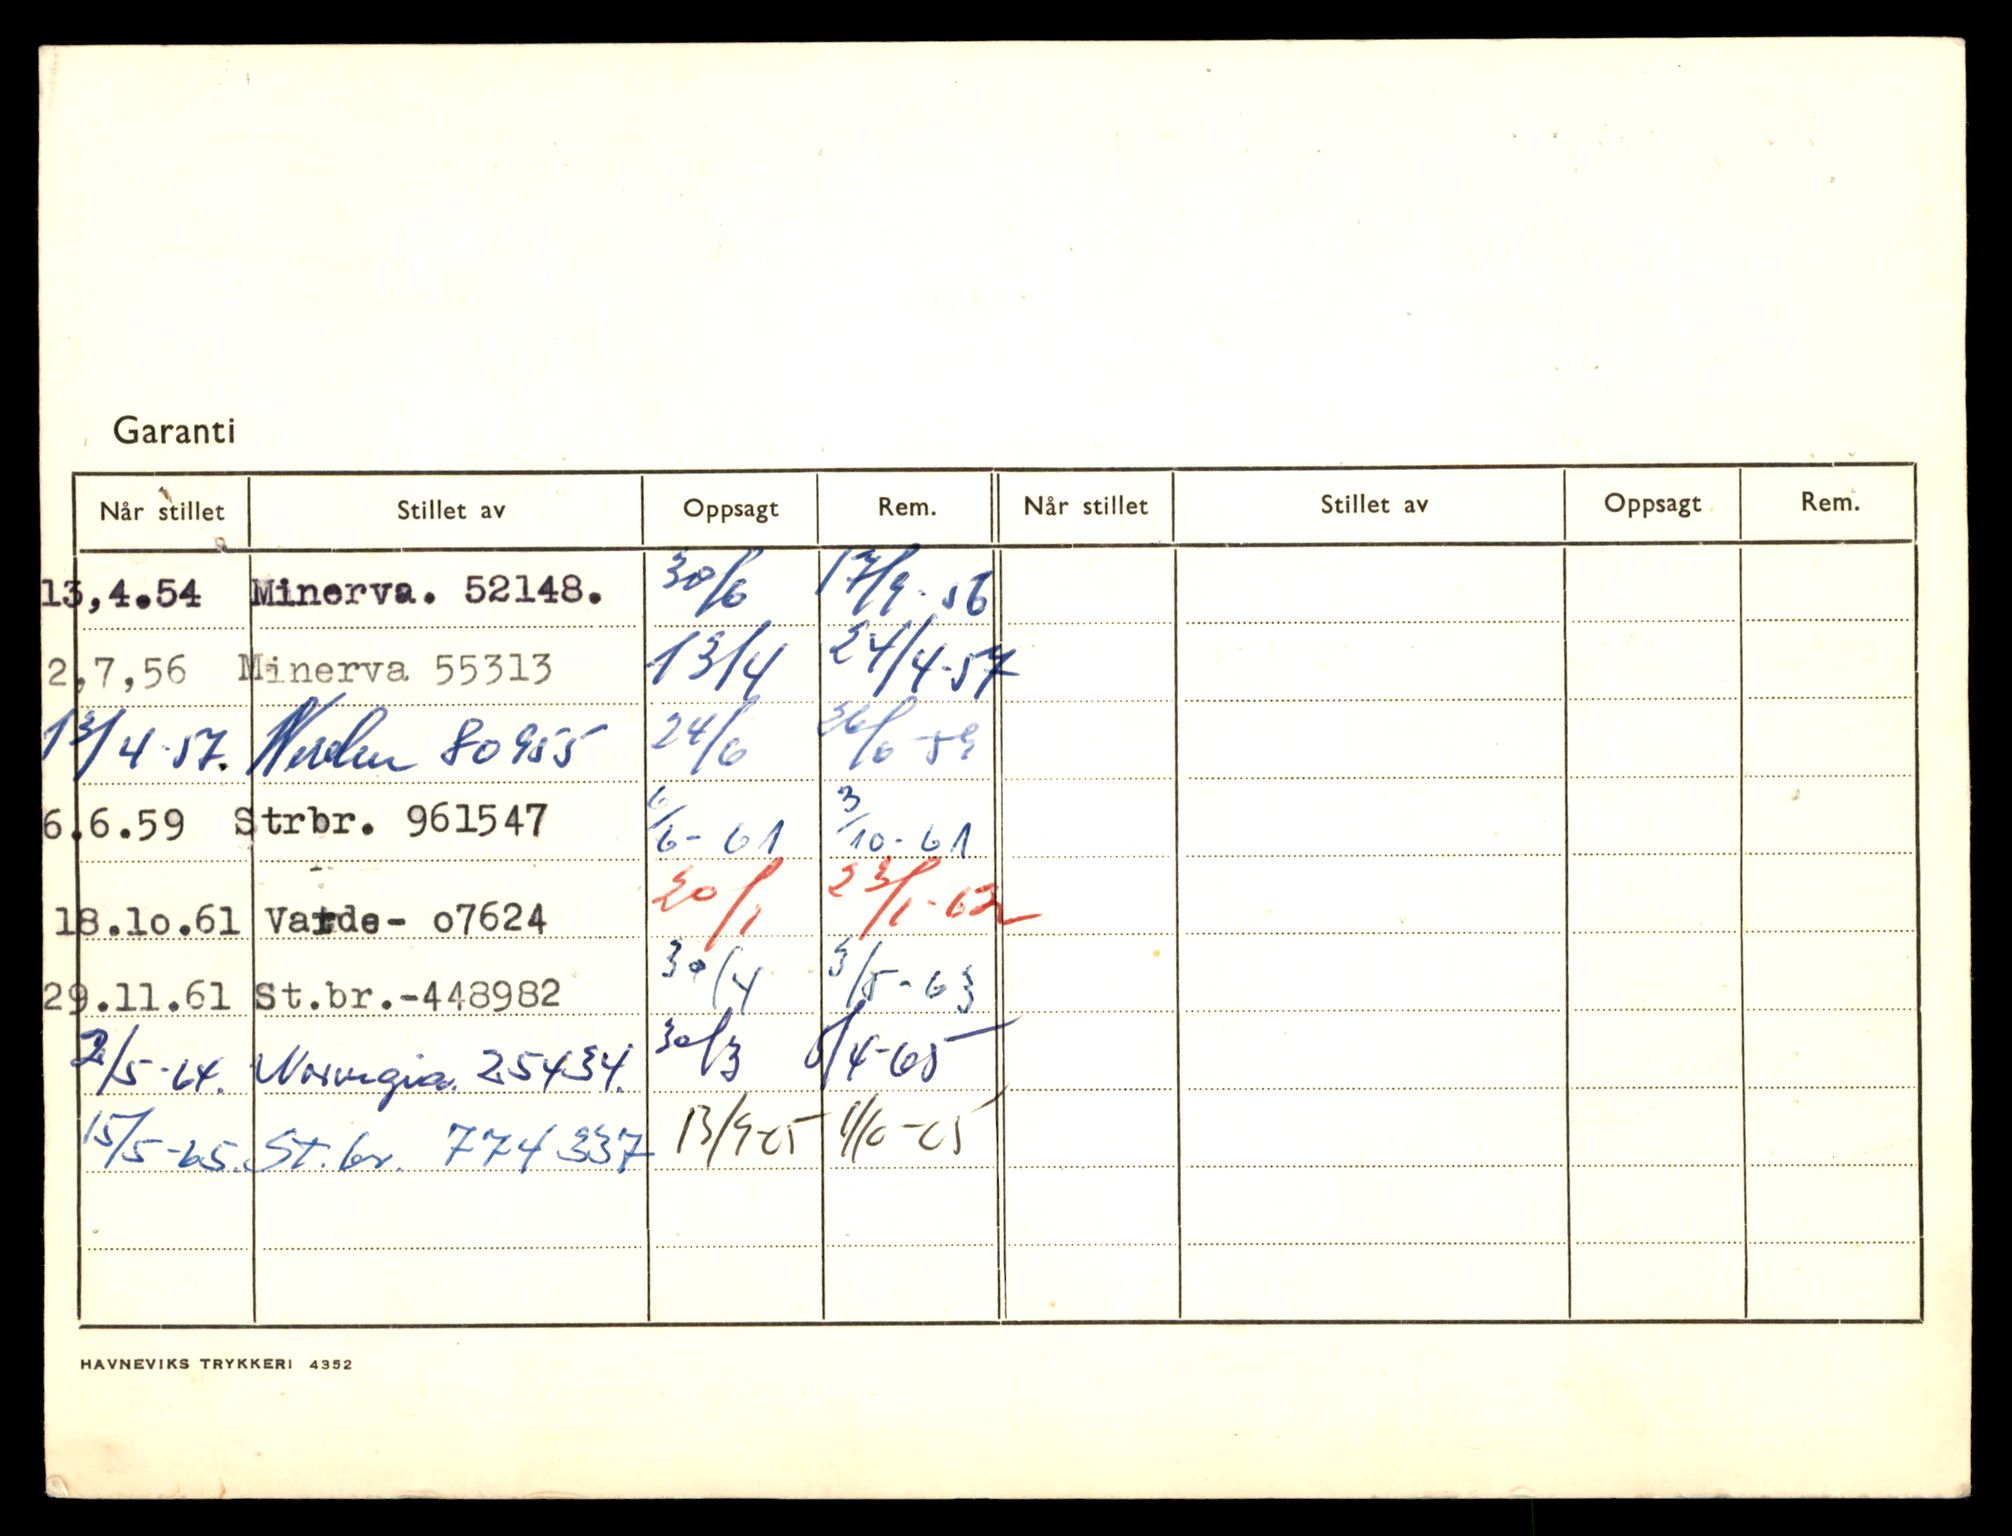 Garanti
Når stillet Stillet av Oppsagt Rem. Når stillet Stillet av Oppsagt Rem.
13,4.54 Minerva. 52148. 30/6 17/9-56
2,7,56 Minerva 55313 13/4 24/4-57
13/4-57. 80955 24/6 26/6-59
6.6.59 Strbr. 961547 6/6-61 3/10-61
18.10.61 Varde- 07624 20/1 23/1-62
29.11.61 St.br.-448982 30/4 3/5-63
2/5-64. Norvegia. 25434. 30/3 /4-65
15/5-65. St.br. 774337 13/9-65
HAVNEVIKS TRYKKERI 4352